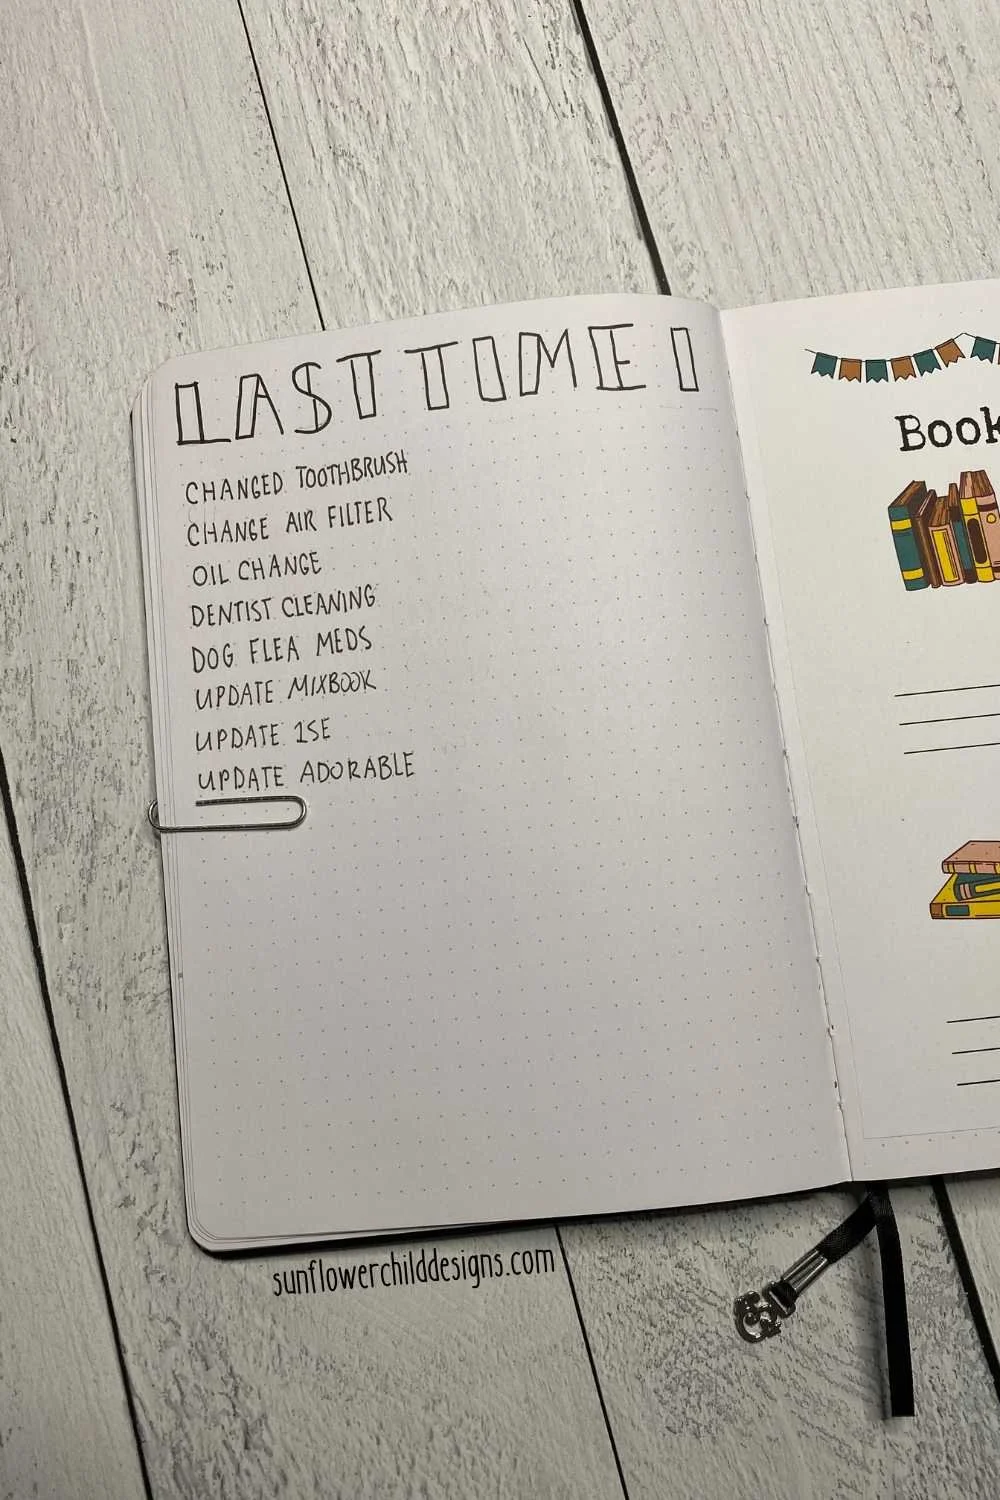 LAST TIME I
CHANGED TOOTHBRUSH
CHANGE AIR FILTER
OIL CHANGE
DENTIST CLEANING
DOG FLEA MEDS
UPDATE MIXBOOK
UPDATE 1SE
UPDATE ADORABLE
Book
sunflowerchilddesigns.com